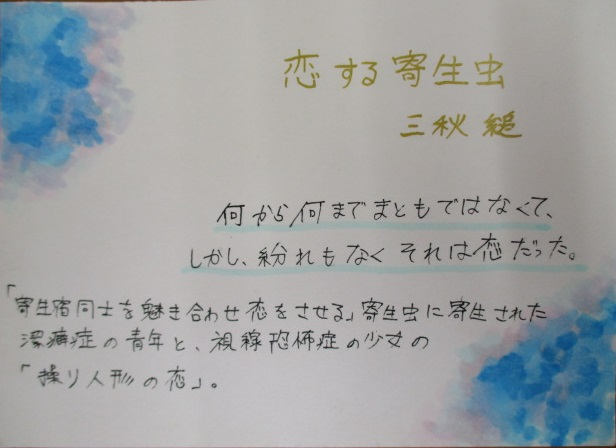 恋する寄生虫
三秋 縋
何から何までまともではなくて、
しかし、紛れもなく それは恋だった。
「寄生宿同士を魅き合わせ恋をさせる」寄生虫に寄生された
潔癖症の青年と、視線恐怖症の少女の
「操り人形の恋」。